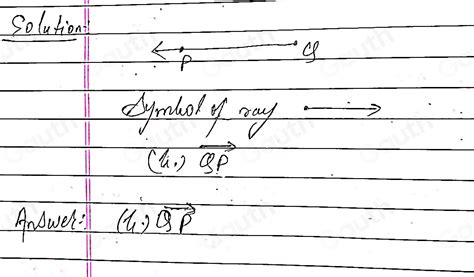 Solution:
P Q
Symbol of ray
(h.) QP
Answer: (h.) QP